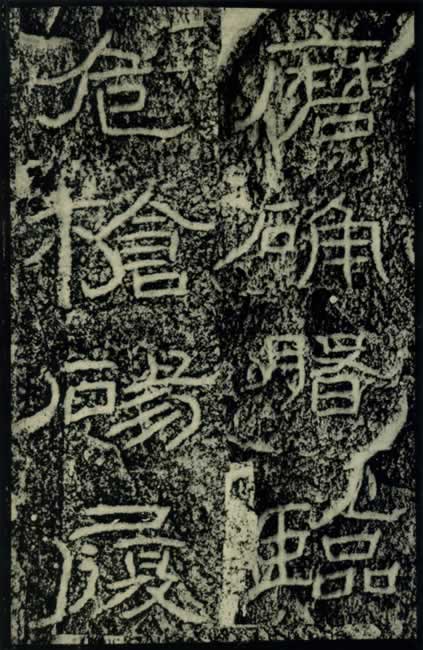 磨确磐臨
危槍碭履